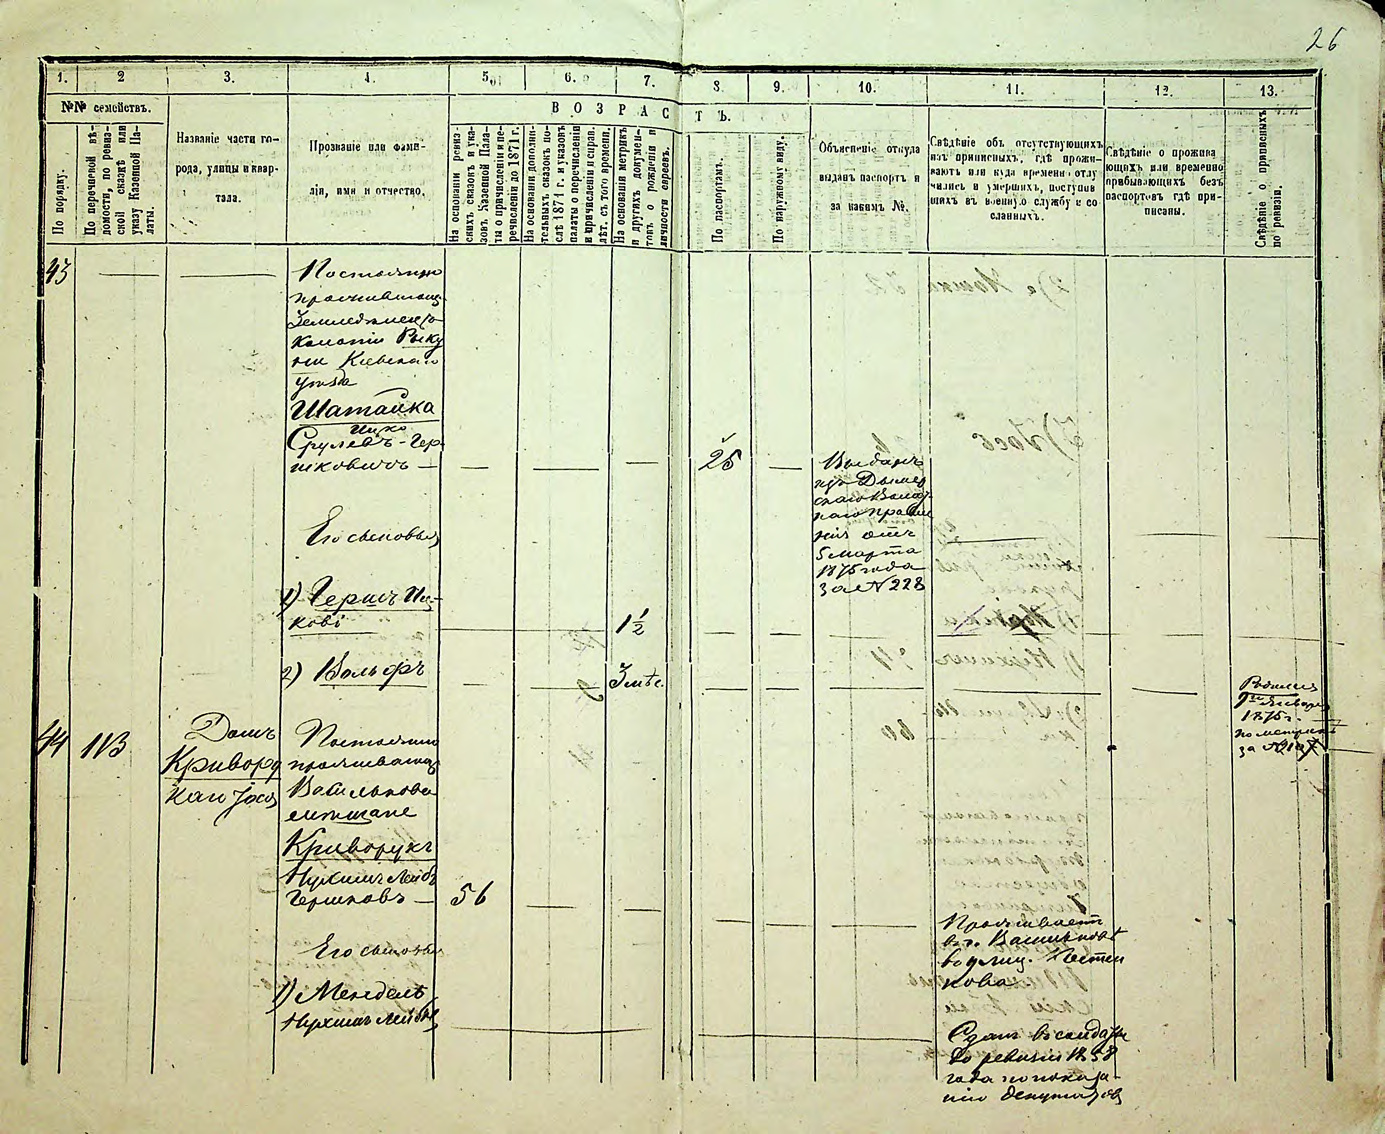 26
1. 2 3. 4. 5. 6. 7. 8. 9. 10. 11. 12. 13.
№№ семействъ.
ВОЗРАСТЪ.
По порядку.
По перечневой вѣ-
домости, по ревиз-
ской сказкѣ или
указу Казенной Па-
латы.
Названіе части го-
рода, улицы и квар-
тала.
Прозваніе или фами-
лія, имя и отчество.
На основаніи ревиз-
скихъ сказокъ и ука-
зовъ Казенной Пала-
ты о причисленіи и пе-
речисленіи до 1871 г.
На основаніи дополни-
тельныхъ сказокъ по-
слѣ 1871 г. и указовъ
палаты о перечисленіи
и причисленіи и справ.
лѣт. съ того времени.
На основаніи метрикъ
и другихъ докумен-
товъ о рожденіи и
личности евреевъ.
По паспортамъ.
По наружному виду.
Объясненіе откуда
выданъ паспортъ и
за какимъ №.
Свѣдѣніе объ отсутствующихъ
изъ приписныхъ, гдѣ прожи-
ваютъ или куда временно отлу
чились и умершихъ, поступив
шихъ въ военную службу и со
сланныхъ.
Свѣдѣніе о прожива
ющихъ или временно
прибывающихъ безъ
паспортовъ гдѣ при-
писаны.
Свѣдѣніе о приписныхъ
по ревизіи.
43
Постоянно
проживающ.
Колоніи Рыку
ни Кіевскаго
уѣзда
Шатайка
Ицко
Срулевъ-Гер-
шковичъ —
25
Выданъ
изъ Дымер
скаго Волост
наго Правле
нія отъ
5 марта
1875 года
за № 228
Его сыновья
1) Гершъ Иц-
ковъ
1½
2) Вольфъ
3 мѣс.
Родился
9го Января
1875 г.
по метрикѣ
44
113
Домъ
Криворуц
Постоянно
проживающ.
Васильков
мѣщане
Криворукъ
Нухимъ Лейбъ
Гершковъ —
56
Проживаетъ
въ г. Васильковѣ
Его сыновья
1) Мендель
Нухимъ Лейбов
Сданъ въ солдаты
до ревизіи 1858
года по показа-
нію депутатов